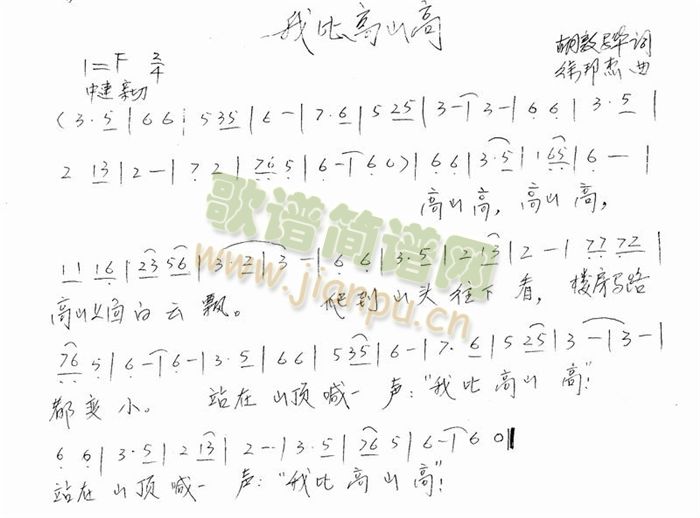 我比高山高
1=F 2/4
胡敦骅词
徐邦杰曲
中速 亲切
(3·5|66|535|6-|7·6|525|3-|3-|66|3·5|
2 13|2-|72|765|6-|60)|66|3·5|165|6-|
高山高，高山高，
11 16|23 56|3 3|3-|66|3·5|2 13|2-|77 72|
高山上面白云飘。 爬到山头往下看，楼房马路
76 5|6-|6-|3·5|66|535|6-|7·6|5 25|3-|3-|
都变小。 站在山顶喊一声："我比高山高！"
66|3·5|2 13|2-|3·5|76 5|6-|60‖
站在山顶喊一声："我比高山高"！
歌谱简谱网
www.jianpu.cn